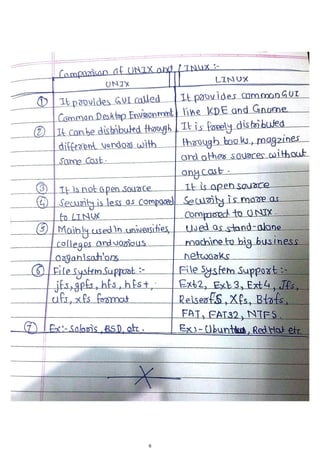 Comparison of UNIX and LINUX :-
UNIX
LINUX
① It provides GUI called
Comman Desktop Environment
② It can be distributed through
different vendors with
some cost.
③ It is not open source
④ Security is less as compared
to LINUX
⑤ Mainly used in universities,
colleges and various
organisations
⑥ File system support :-
jfs, gpfs, hfs, hfs+,
ufs, xfs format
⑦ Ex:- Solaris, BSD, etc.
It provides common GUI
like KDE and Gnome
It is freely distributed
through books, magzines
and other sources without
any cost.
It is open source
Security is more as
compared to UNIX
Used as stand-alone
machine to big business
networks
File system support :-
Ext2, Ext3, Ext4, Jfs,
ReiserFS, Xfs, Btrfs,
FAT, FAT32, NTFS.
Ex:- Ubuntu, Red Hat etc.